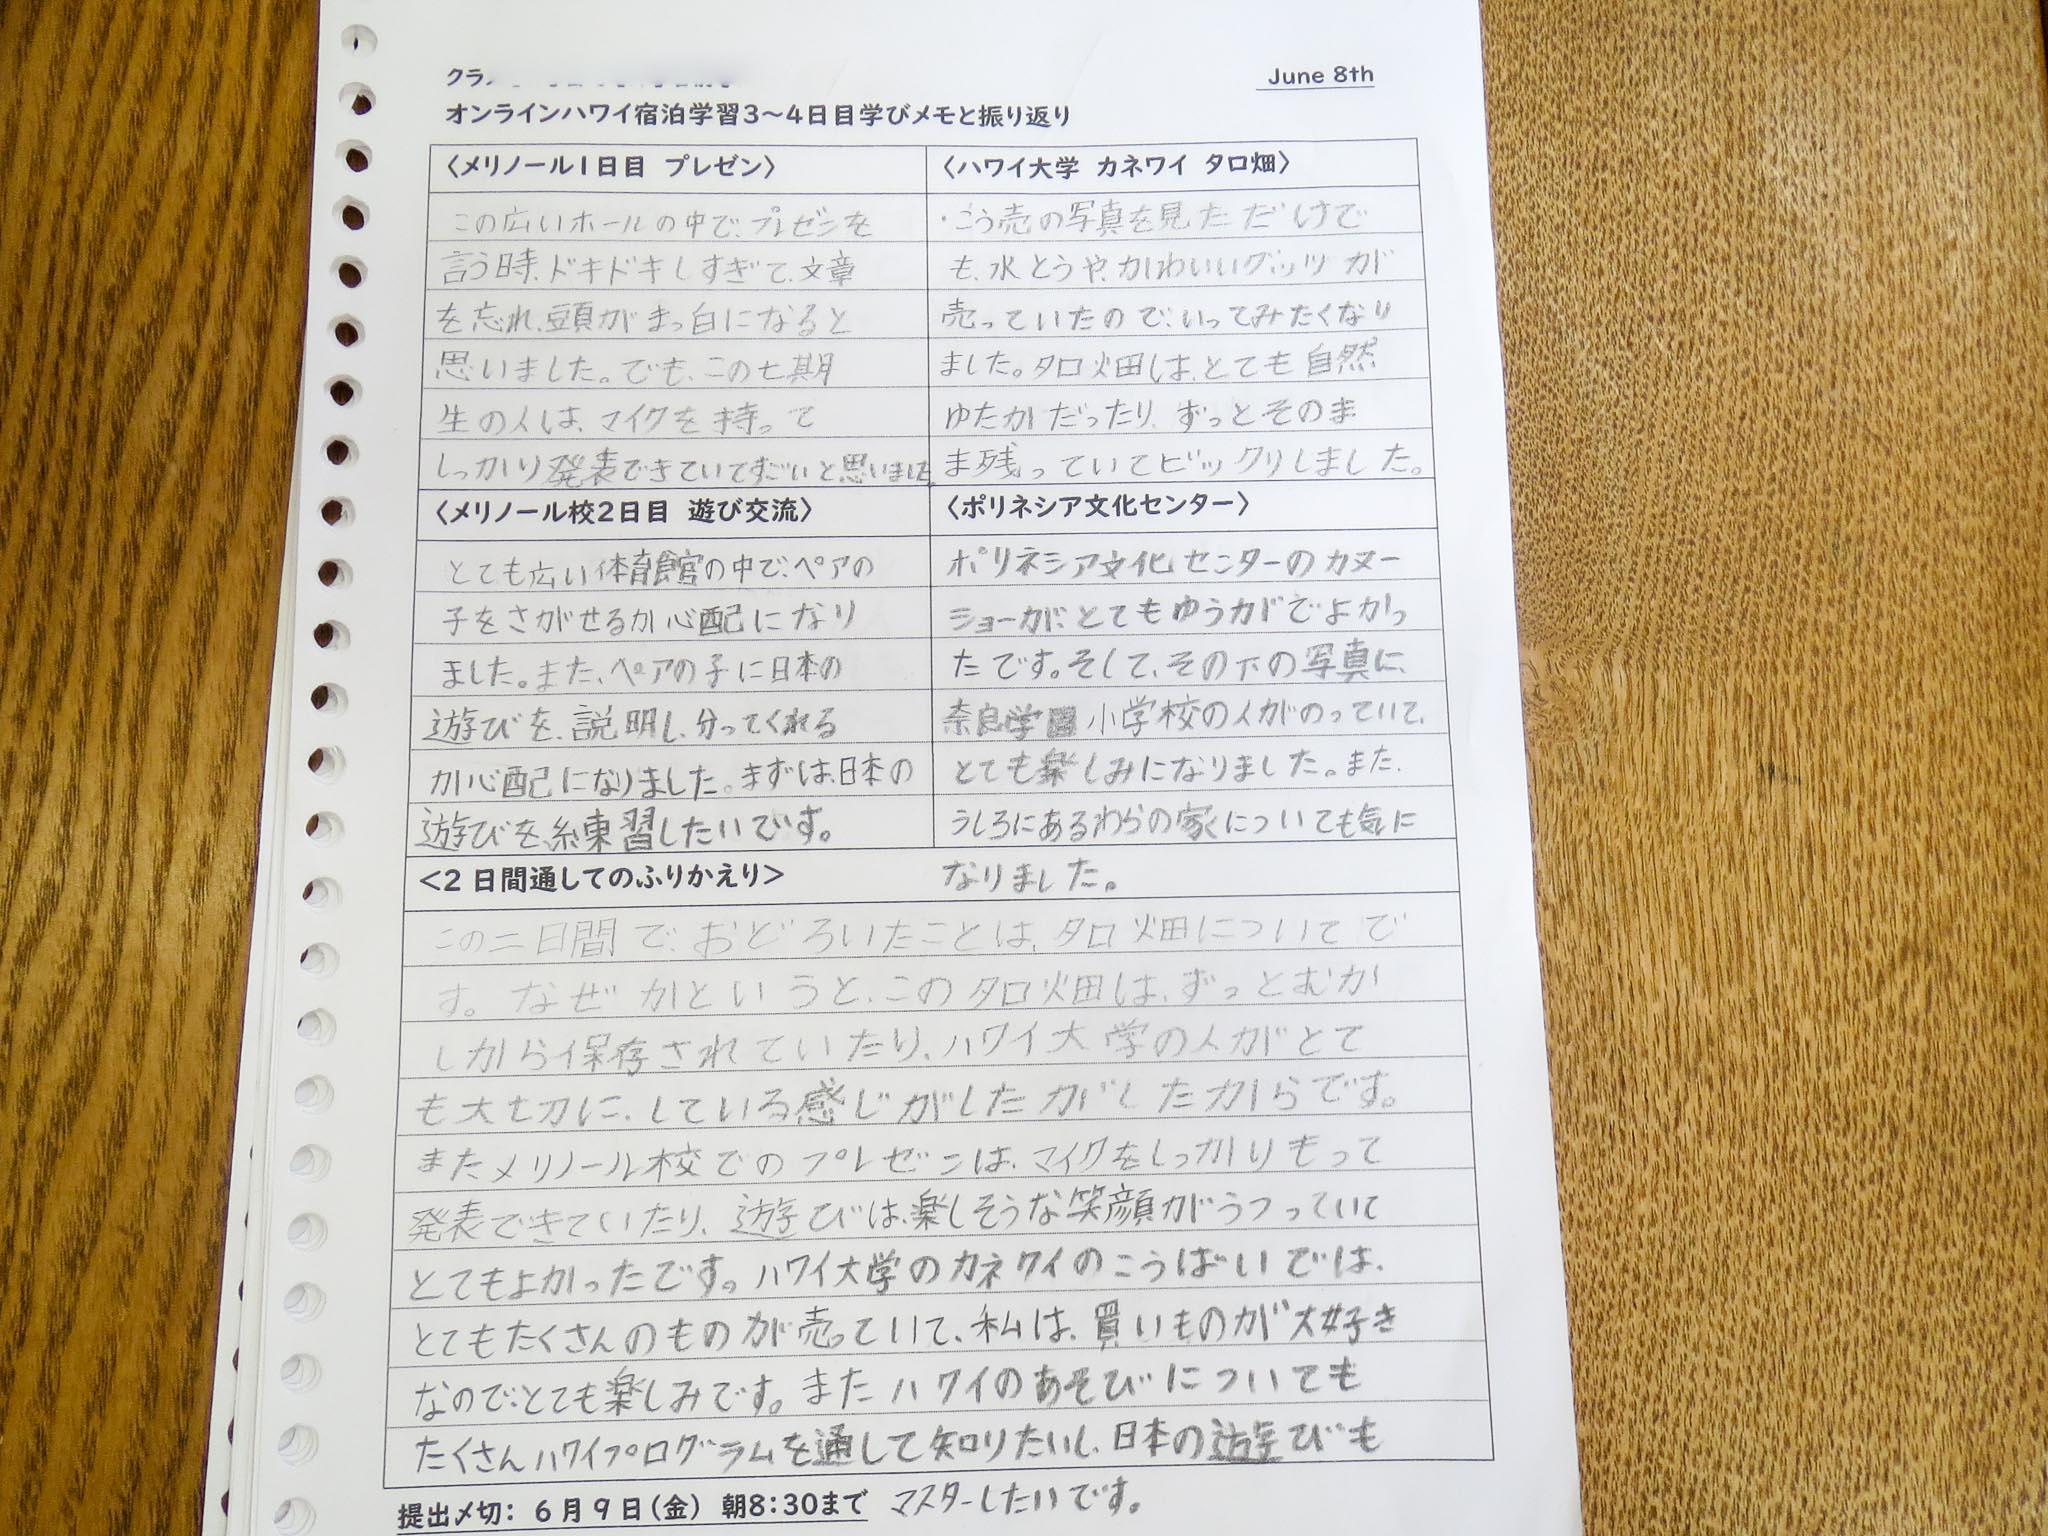 June 8th
オンラインハワイ宿泊学習3〜4日目学びメモと振り返り
〈メリノール1日目 プレゼン〉
この広いホールの中で、プレゼンを
言う時、ドキドキしすぎて、文章
を忘れ、頭がまっ白になると
思いました。でも、この七期
生の人は、マイクを持って
しっかり発表できていてすごいと思いました。
〈ハワイ大学 カネワイ タロ畑〉
・こう売の写真を見ただけで
も、水とうや、かわいいグッツが
売っていたので、いってみたくなり
ました。タロ畑は、とても自然
ゆたかだったり、ずっとそのま
ま残っていてビックリしました。
〈メリノール校2日目 遊び交流〉
とても広い体育館の中で、ペアの
子をさがせるか心配になり
ました。また、ペアの子に日本の
遊びを、説明し、分ってくれる
か心配になりました。まずは、日本の
遊びを、練習したいです。
〈ポリネシア文化センター〉
ポリネシア文化センターのカヌー
ショーが、とてもゆうがでよかっ
たです。そして、その下の写真に、
奈良学園小学校の人がのっていて、
とても楽しみになりました。また、
うしろにあるわらの家についても気に
なりました。
<2日間通してのふりかえり>
この二日間で、おどろいたことは、タロ畑についてで
す。なぜかというと、このタロ畑は、ずっとむか
しから保存されていたり、ハワイ大学の人がとて
も大切に、している感じがしたがしたからです。
またメリノール校でのプレゼンは、マイクをしっかりもって
発表できていたり、遊びは、楽しそうな笑顔がうつっていて
とてもよかったです。ハワイ大学のカネワイのこうばいでは、
とてもたくさんのものが売っていて、私は、買いものが大好き
なので、とても楽しみです。またハワイのあそびについても
たくさんハワイプログラムを通して知りたいし、日本の遊びも
マスターしたいです。
提出〆切： 6月9日(金) 朝8:30まで